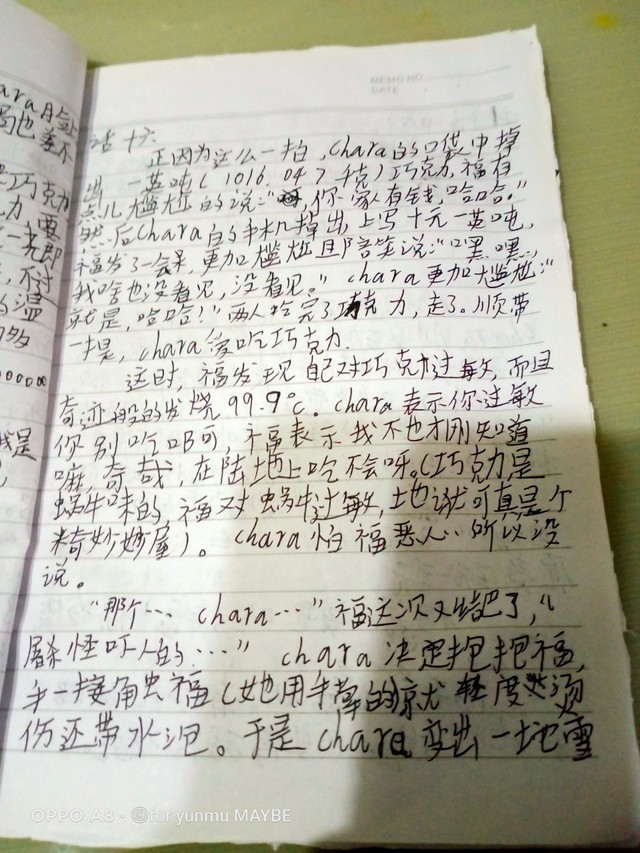 MEMO NO.
DATE
1
话十六
正因为这么一拍,chara的口袋中掉
出一英吨(1016.047千克)巧克力,福有
点儿尴尬的说:“啊,你家有钱,哈哈。”
然后chara的手机掉出,上写十元一英吨,
福发了一会呆,更加尴尬且陪笑说:“嘿嘿,
我啥也没看见,没看见。”chara更加尴尬:“
就是,哈哈!”两人吃完了巧克力,走了。顺带
一提,chara爱吃巧克力.
这时,福发现自己对巧克力过敏,而且
奇迹般的发烧99.9℃。chara表示你过敏
你别吃口阿,福表示我不也才刚知道
嘛,奇哉,在陆地上吃不会呀。(巧克力是
蜗牛味的,福对蜗牛过敏,
奇妙妙屋)。chara怕福恶人..所以没
说。
“那个… chara…”福这次又结巴了,“
屠杀怪吓人的…”chara决定抱抱福,
手一接触福(她也用手掌的)就轻度烫
伤还带水泡。于是chara变出一地雪
ara
也差不
巧克力
力,
即
,不过
的温
多
000000
我是
OPPO A8 · ©for yunmu MAYBE